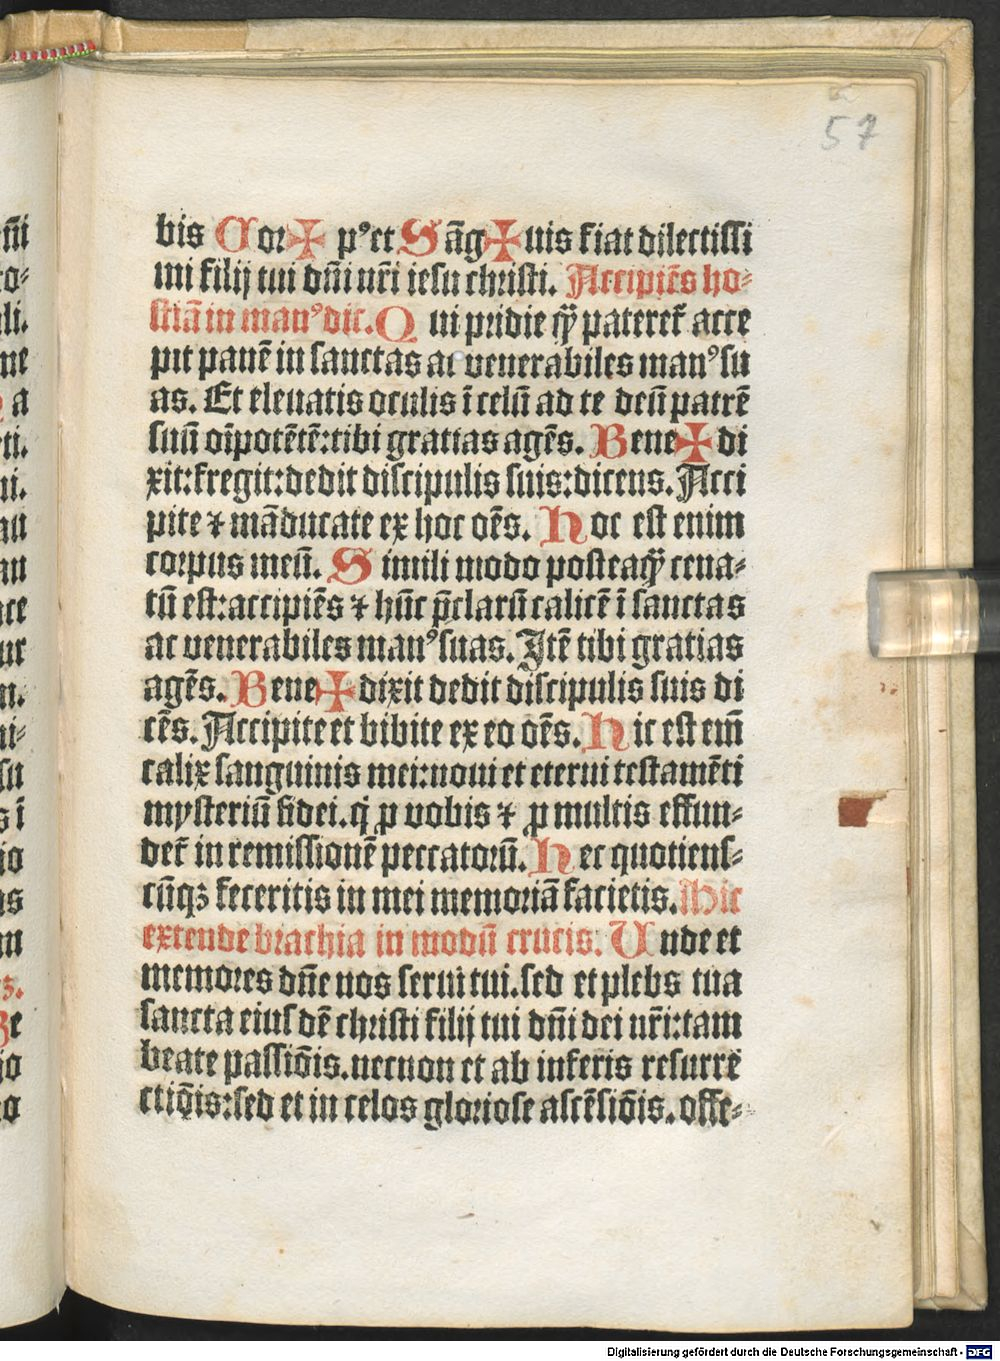 57
bis Cor✠ pꝰet Sāg✠uis fiat dilectissi
mi filij tui dn̄i nr̄i iesu christi. Accipiēs ho⸗
stiā in manꝰdic. Qui pridie qͣ̄ pateret᷑ acce
pit panē in sanctas ac venerabiles manꝰsu
as. Et eleuatis oculis ī celū ad te deū patrē
suū oīpotētē:tibi gratias agēs. Bene✠di
xit:fregit:dedit discipulis suis:dicens. Acci
pite ⁊ māducate ex hoc oēs. Hoc est enim
corpus meū. Simili modo posteaqͣ̄ cena⸗
tū est:accipiēs ⁊ hūc p̄clarū calicē ī sanctas
ac venerabiles manꝰsuas. Itē tibi gratias
agēs. Bene✠dixit dedit discipulis suis di
cēs. Accipite et bibite ex eo oēs. Hic est em̄
calix sanguinis mei:noui et eterni testamēti
mysteriū fidei. q̇ ꝓ vobis ⁊ ꝓ multis effun⸗
det᷑ in remissionē peccatorū. Hec quotiens⸗
cūqꝫ feceritis in mei memoriā facietis. Hic
extende brachia in modū crucis. Unde et
memores dn̄e nos serui tui. sed et plebs tua
sancta eiusdē christi filij tui dn̄i dei nr̄i:tam
beate passiōis. necnon et ab inferis resurre
ctiōis:sed et in celos gloriose ascēsiōis. offe⸗
Digitalisierung gefördert durch die Deutsche Forschungsgemeinschaft - DFG